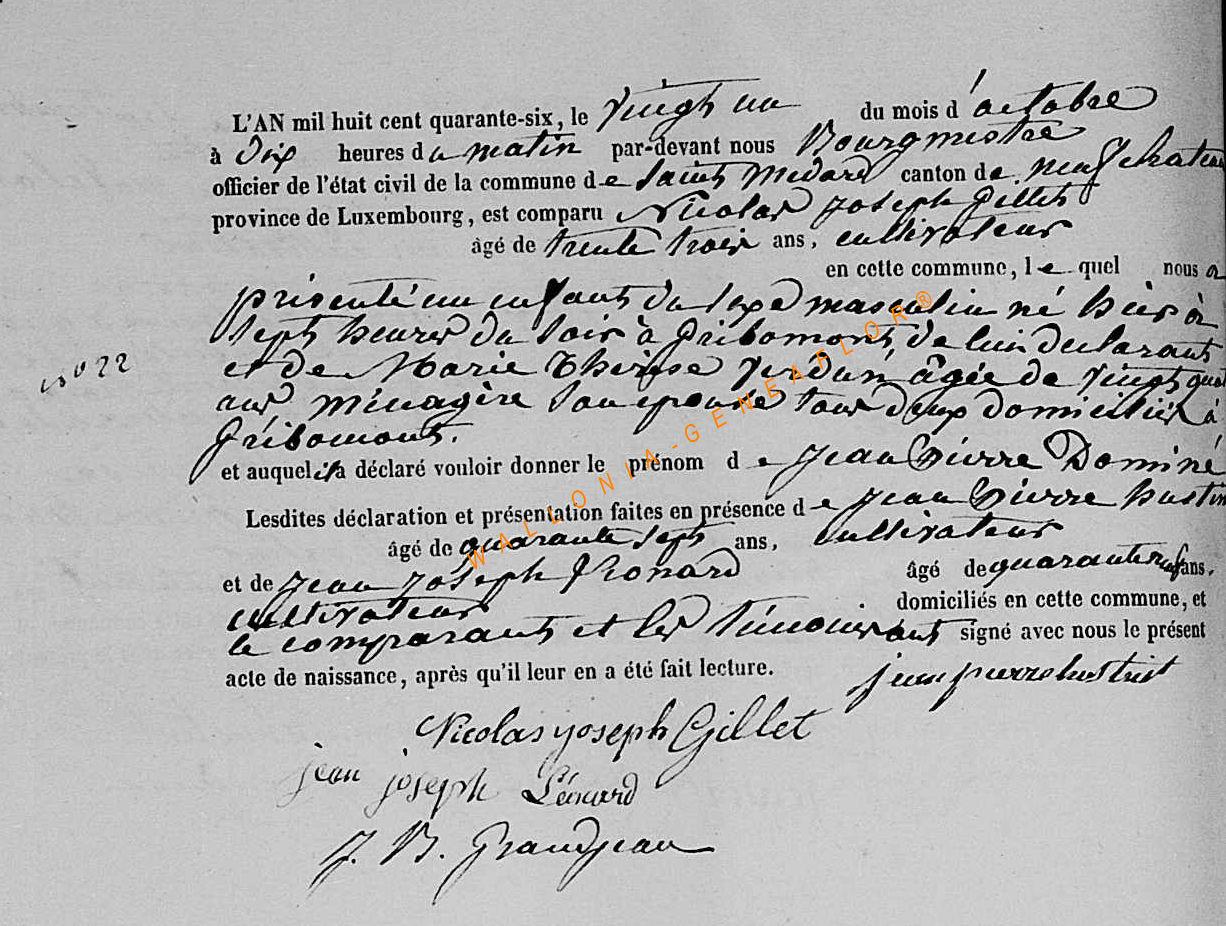 L'AN mil huit cent quarante-six, le vingt un du mois d'octobre
à dix heures du matin par-devant nous Bourgmestre
officier de l'état civil de la commune de Saint Medard canton de neufchateau
province de Luxembourg, est comparu Nicolas Joseph Gillet
âgé de trente trois ans, cultivateur
en cette commune, le quel nous a
présenté un enfant du sexe masculin né hier à
sept heures du soir à Gribomont, de lui declarant
et de Marie Therese Verdun, âgée de vingt quat
ans, ménagère son epouse tous deux domiciliés à
Gribomont.
N° 22
et auquel il a déclaré vouloir donner le prénom de Jean Pierre Dominé
Lesdites déclaration et présentation faites en présence de Jean Pierre hustin
âgé de quarante sept ans, cultivateur
et de Jean Joseph Léonard âgé de quarante ans,
cultivateur domiciliés en cette commune, et
le comparant et les témoins ont signé avec nous le présent
acte de naissance, après qu'il leur en a été fait lecture.
jean pierre hustin
Nicolas joseph Gillet
jean joseph Léonard
J. B. Grandjean
WALLONIA-GENEARLOR®